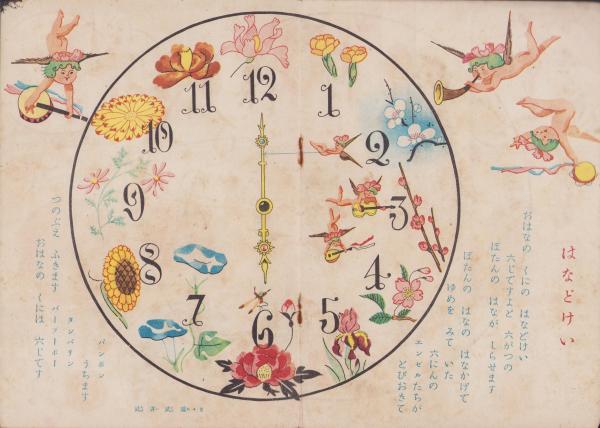 はなどけい
おはなの くにの はなどけい
六じですよと 六がつの
ぼたんの はなが しらせます
ぼたんの はなの はなかげで
ゆめを みて いた
六にんの
エンゼルたちが
とびおきて
タンバリン
うちます
パンポン
つのぶえ ふきます
おはなの くには 六じです
12
1
2
3
4
5
6
7
8
9
10
11